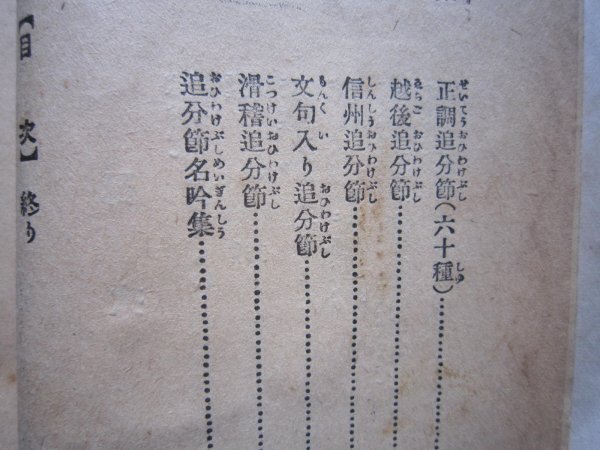 正調追分節(六十種)
越後追分節
信州追分節
文句入り追分節
滑稽追分節
追分節名吟集
【目次】終り